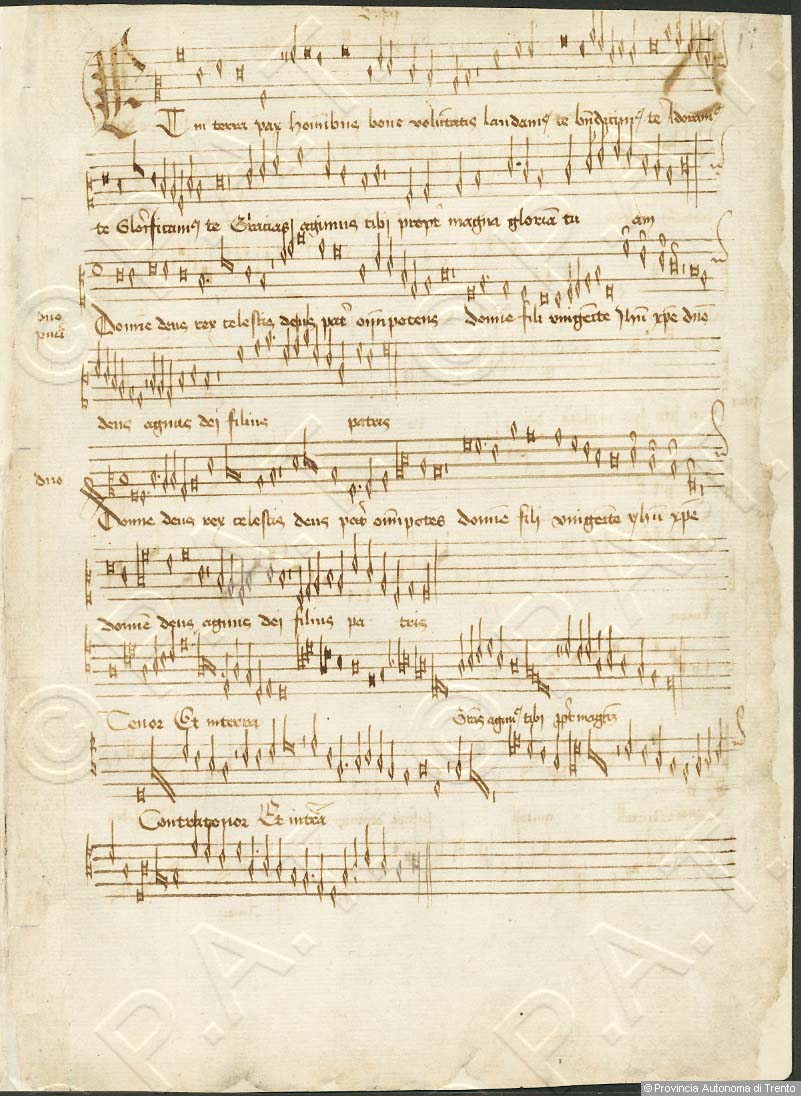 Et in terra pax hominibus bone voluntatis laudamꝰ te bn̄dicimꝰ te Adoramꝰ
te Glorificamꝰ te Gracias agimus tibi propt magnā gloriā tu am
duo
Domine deus rex celestis deus pat om̄ipotens domine fili vnigenite yhū xp̄e dn̄e
deus agnus dei filius patris
duo
Domine deus rex celestis deus pat om̄ipotēs domine fili vnigenite yhū xp̄e
domine deus agnus dei filius pa tris
Tenor Et in terra Gr̄as agimꝰ tibi ppt magnā
Contratenor Et in terra
© Provincia Autonoma di Trento
© P.A.T.